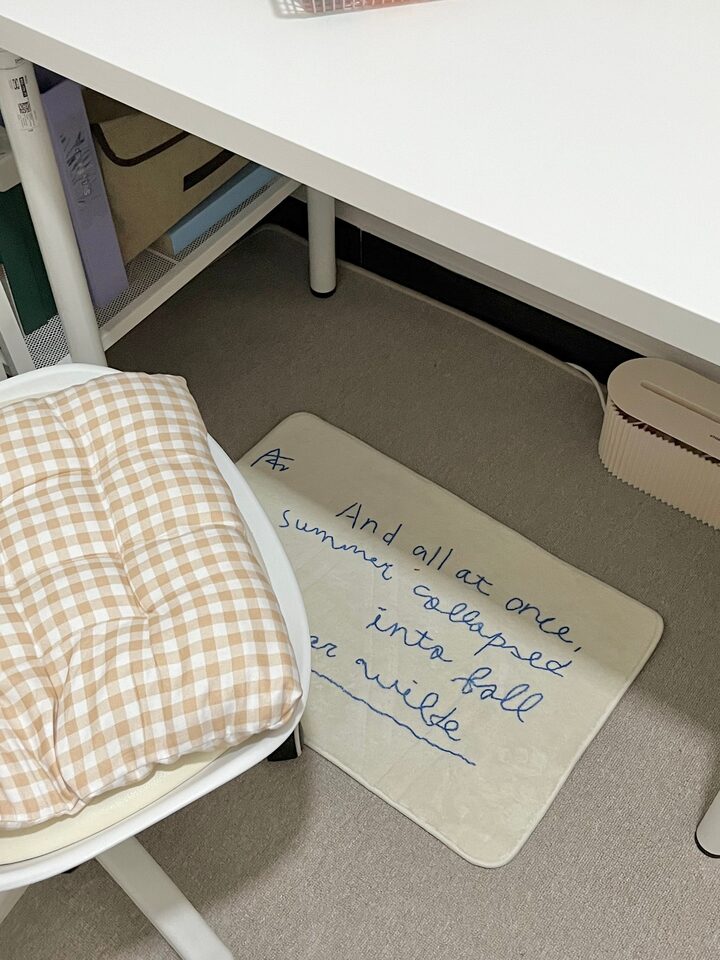 And all at once,
summer collapsed
into fall
ar wilde